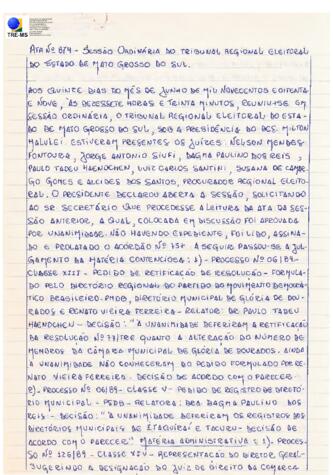 TRE-MS
ATA Nº 674 - SESSÃO ORDINÁRIA DO TRIBUNAL REGIONAL ELEITORAL
DO ESTADO DE MATO GROSSO DO SUL.
AOS QUINZE DIAS DO MÊS DE JUNHO DE MIL NOVECENTOS E OITENTA
E NOVE, ÀS DEZESSETE HORAS E TRINTA MINUTOS, REUNIU-SE EM
SESSÃO ORDINÁRIA, O TRIBUNAL REGIONAL ELEITORAL DO ESTA-
DO DE MATO GROSSO DO SUL, SOB A PRESIDÊNCIA DO DES. MILTON
MALULEI. ESTIVERAM PRESENTES OS JUÍZES: NELSON MENDES-
FONTOURA, JORGE ANTONIO SIUFI, DAGMA PAULINO DOS REIS,
PAULO TADEU HAENDCHEN, LUIZ CARLOS SANTINI, SUSANA DE CAMAR-
GO GOMES E ALCIDES DOS SANTOS, PROCURADOR REGIONAL ELEITO-
RAL. O PRESIDENTE DECLAROU ABERTA A SESSÃO, SOLICITANDO
AO SR. SECRETÁRIO QUE PROCEDESSE A LEITURA DA ATA DA SES-
SÃO ANTERIOR, A QUAL, COLOCADA EM DISCUSSÃO FOI APROVADA
POR UNANIMIDADE. NÃO HAVENDO EXPEDIENTE, FOI LIDO, ASSINA-
DO E PROLATADO O ACÓRDÃO Nº A SEGUIR PASSOU-SE A JUL-
GAMENTO DA MATÉRIA CONTENCIOSA: 1) - PROCESSO Nº 06/89-
CLASSE XIII - PEDIDO DE RETIFICAÇÃO DE RESOLUÇÃO - FORMULA-
DO PELO DIRETÓRIO REGIONAL DO PARTIDO DO MOVIMENTO DEMOCRÁ-
TICO BRASILEIRO - PMDB, DIRETÓRIO MUNICIPAL DE GLÓRIA DE DOU-
RADOS E RENATO VIEIRA FERREIRA - RELATOR: DR. PAULO TADEU
HAENDCHEN - DECISÃO: "À UNANIMIDADE DEFERIRAM A RETIFICAÇÃO
DA RESOLUÇÃO Nº QUANTO A ALTERAÇÃO DO NÚMERO DE
MEMBROS DA CÂMARA MUNICIPAL DE GLÓRIA DE DOURADOS. AINDA
À UNANIMIDADE NÃO CONHECERAM DO PEDIDO FORMULADO POR RE-
NATO VIEIRA FERREIRA. DECISÃO DE ACORDO COM O PARECER".
2) - PROCESSO Nº 06/89 - CLASSE V - PEDIDO DE REGISTRO DE DIRETÓ-
RIO MUNICIPAL - PSDB - RELATORA: DRA. DAGMA PAULINO DOS
REIS - DECISÃO: "À UNANIMIDADE DEFERIRAM OS REGISTROS DOS
DIRETÓRIOS MUNICIPAIS DE ITAQUIRAÍ E TACURU - DECISÃO DE
ACORDO COM O PARECER". MATÉRIA ADMINISTRATIVA: 1) - PROCES-
SO Nº 126/89 - CLASSE XIV - REPRESENTAÇÃO DO DIRETOR GERAL-
SUGERINDO A DESIGNAÇÃO DO JUIZ DE DIREITO DA COMARCA